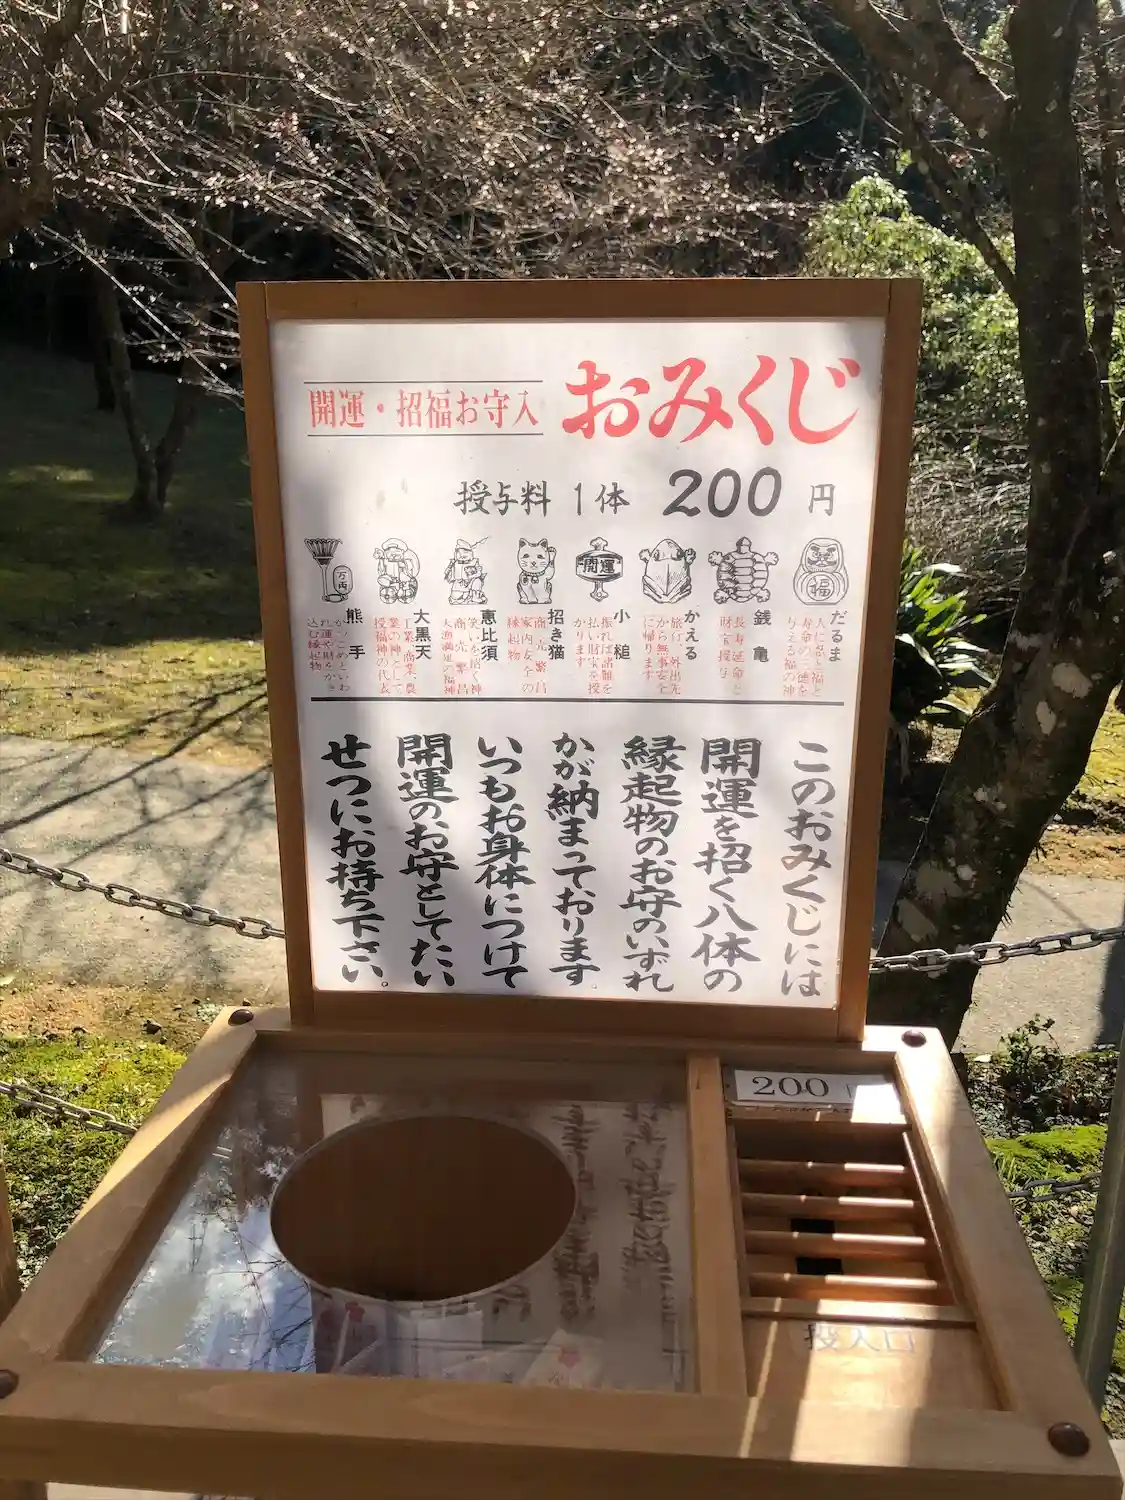 おみくじ
開運・招福お守入
授与料 1体 200 円
だるま
人に忍と福と
寿命の三徳を
与える福の神
銭亀
長寿延命と
財宝授与
かえる
旅行、外出先
から無事安全
に帰ります
小槌
開運
振れば諸難を
払い財宝を授
かります
招き猫
商売繁昌
家内安全の
縁起物
恵比須
笑いを招く神
商売繁昌
大漁満足の福神
大黒天
工業、商業、農
業の神として
授福神の代表
熊手
万両
かっこめといわ
れ運や財をかき
込む縁起物
福
このおみくじには
開運を招く八体の
縁起物のお守のいずれ
かが納まっております。
いつもお身体につけて
開運の、お守としてたい
せつにお持ち下さい。
200
投入口